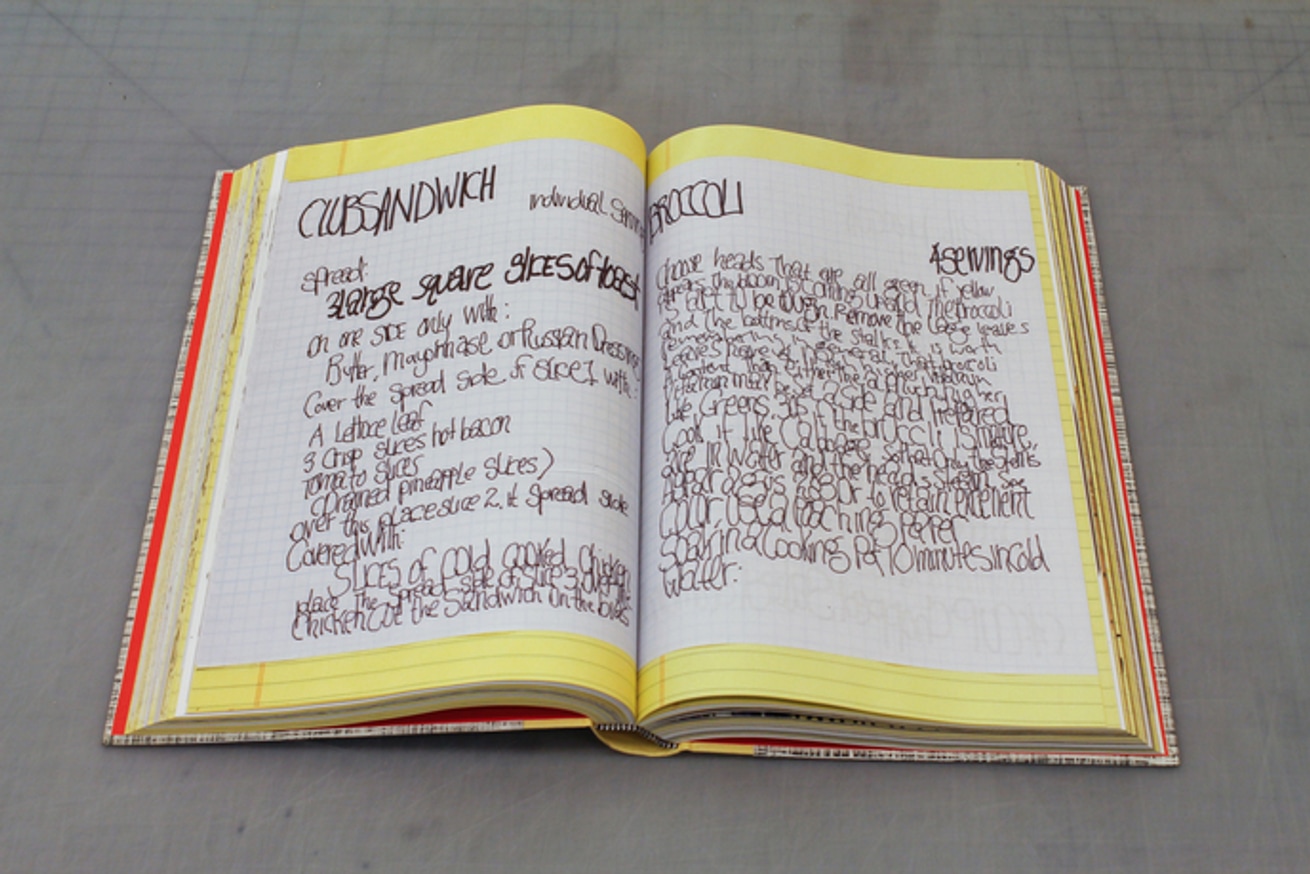 CLUBSANDWICH individual Servin
spread:
3large square SLICES of toast
on one side only with:
Butter, Mayonnase or Russian Dressing
Cover the spread side of Slice 1 with:
A Lettuce leaf
3 Crisp slices hot bacon
Tomato slices
(Drained pineapple slices)
over this place slice 2. it spread side
Covered with:
SLICES of cold cooked chicken
place the spread side of slice 3, on
Chicken Cut the Sandwich on the bias
BROCCOLI
4servings
Choose heads that are all green. if yellow
appears the bloom is coming up and the broccoli
is apt to be tough. Remove the large leaves
and the bottoms of the stalks. it is worth
remembering in general that broccoli
leaves have
content than either the
may be set aside and Prepared
Like Greens.
Cook if like Cabbage, so that only the stems
are in water and the heads steam.
to retain excellent
color, use a poaching Paper
Soaking Cooking 10 minutes in Cold
Water: